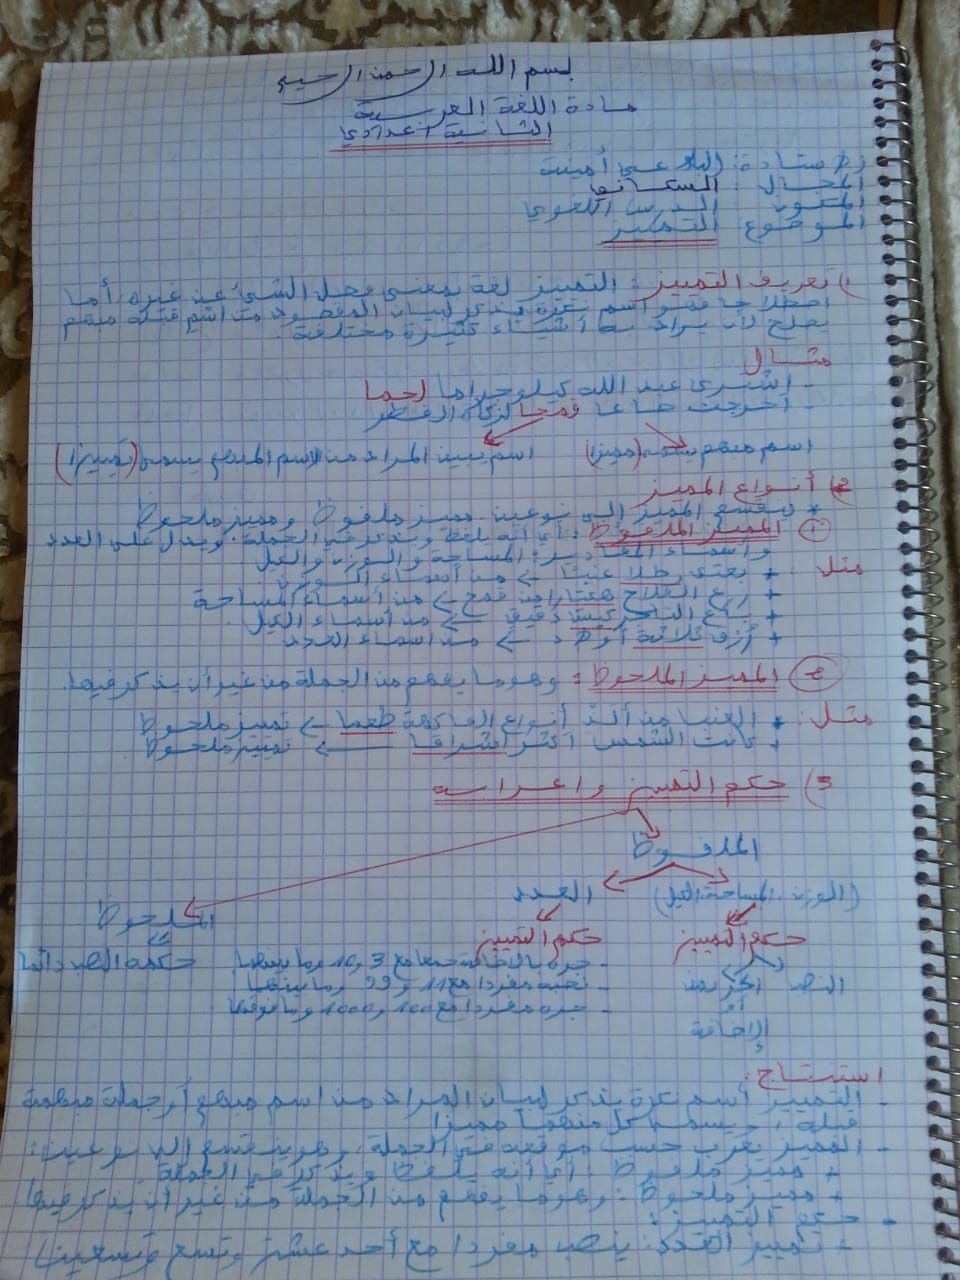 بسم الله الرحمن الرحيم
مادة اللغة العربية
الثانية اعدادي
الأستاذة: أمينة
المجال: السكاني
المكون: الدرس اللغوي
الموضوع: التمييز
1) تعريف التمييز: التمييز لغة بمعنى فصل الشيء عن غيره أما
اصطلاحا فهو اسم نكرة يذكر لبيان المقصود من اسم قبله مبهم
يصلح لأن يراد به أشياء كثيرة مختلفة.
مثال
- اشترى عبد الله كيلوجراما لحما
- أخرجت صاعا قمحا لزكاة الفطر
اسم مبهم (مميزا) اسم يبين المراد من الاسم المبهم يسمى (تمييزا)
2) أنواع المميز
* ينقسم المميز إلى نوعين: مميز ملفوظ ومميز ملحوظ
① المميز الملفوظ: أي أنه يلفظ ويذكر في الجملة. ويدل على العدد
وأسماء المقادير: المساحة والوزن والكيل
مثل: + رطلا عنبا ← من أسماء الوزن
+ زرع الفلاح هكتارا من قمح ← من أسماء المساحة
+ التاجر كيس دقيق ← من أسماء الكيل
+ رزق ثلاثة أولاد ← من أسماء العدد
② المميز الملحوظ: وهو ما يفهم من الجملة من غير أن يذكر فيها.
مثل: + العنب من ألذ أنواع الفاكهة طعما ← تمييز ملحوظ
+ كانت الشمس أكثر إشراقا ← تمييز ملحوظ
3) حكم التمييز وإعرابه
الملفوظ
(الوزن. المساحة. الكيل) العدد الملحوظ
حكم التمييز حكم التمييز حكمه النصب دائما
النصب الجر بمن أو الإضافة
- جره بالإضافة جمعا مع 3 و10 وما بينهما
- نصبه مفردا مع 11 و99 وما بينهما
- جره مفردا مع 100 و1000 وما فوقها
استنتاج:
- التمييز اسم نكرة يذكر لبيان المراد من اسم مبهم أو جملة مبهمة
قبله، ويسمى كل منهما مميزا
- المميز يعرب حسب موقعه في الجملة. وهو ينقسم إلى نوعين:
+ مميز ملفوظ: أي أنه يلفظ ويذكر في الجملة.
+ مميز ملحوظ: وهو ما يفهم من الجملة من غير أن يذكر فيها
- حكم التمييز:
+ تمييز العدد: ينصب مفردا مع أحد عشر وتسع وتسعين